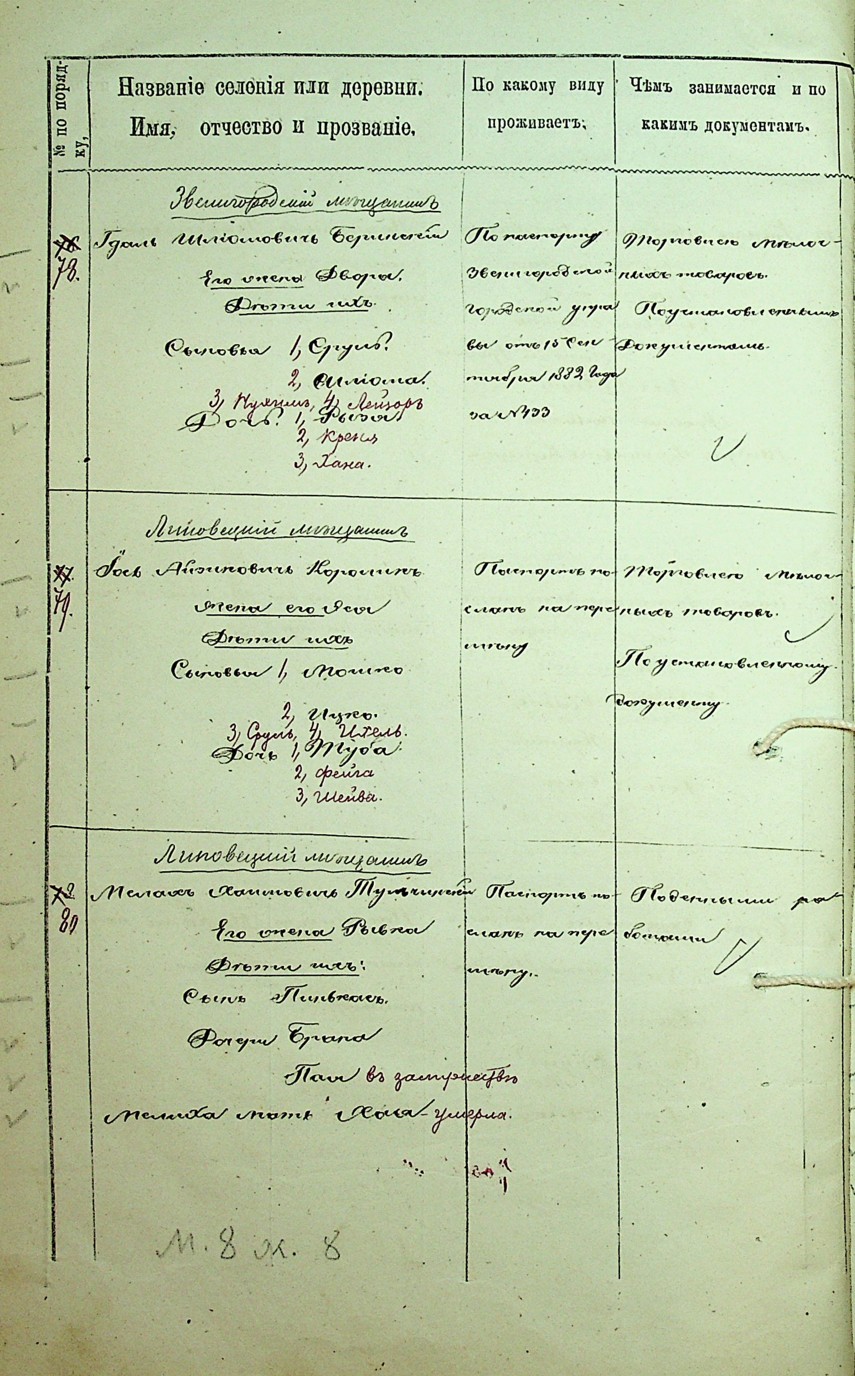 № по поряд-
ку,
Названіе селенія или деревни.
Имя, отчество и прозваніе.
По какому виду
проживаетъ.
Чѣмъ занимается и по
какимъ документамъ.
Звенигородскій мѣщанинъ
78.
Гдаль Шліомовичъ Беринскій
Его жена Двора.
Дѣти ихъ.
Сыновья 1, Сруль.
2, Шліома.
3, 4, Лейзоръ
Дочь: 1, Рыза
2, Креня
3, Хана.
По паспорту
Звенигородской
городской упра
вы отъ 15 Сен
тября 1882 года
за № 433
Торговлею мѣлоч-
ныхъ товаровъ.
По установленнымъ
документамъ
Липовецкій мѣщанинъ
77.
79.
Іось Айзиковичъ Короликъ
жена его Яса
Дѣти ихъ
Сыновья 1, Мошко
2, Ицко.
3, Сруль, 4, Ихель.
Дочь 1, Туба
2, Фейга
3, Шейва.
Паспортъ по-
сланъ на пере
мѣну
Торговлею мѣлоч-
ныхъ товаровъ.
По установленному
документу
Липовецкій мѣщанинъ
80
Мелахъ Хаимовичъ Тульчинскій
Его жена Рывка
Дѣти ихъ:
Сынъ Пинькасъ.
Дочери Брана
Пая въ замужествѣ
Мелиха мать Хая - умерла.
Паспортъ по-
сланъ на пере
мѣну.
Поденными ра-
ботами
М. 8 ж. 8